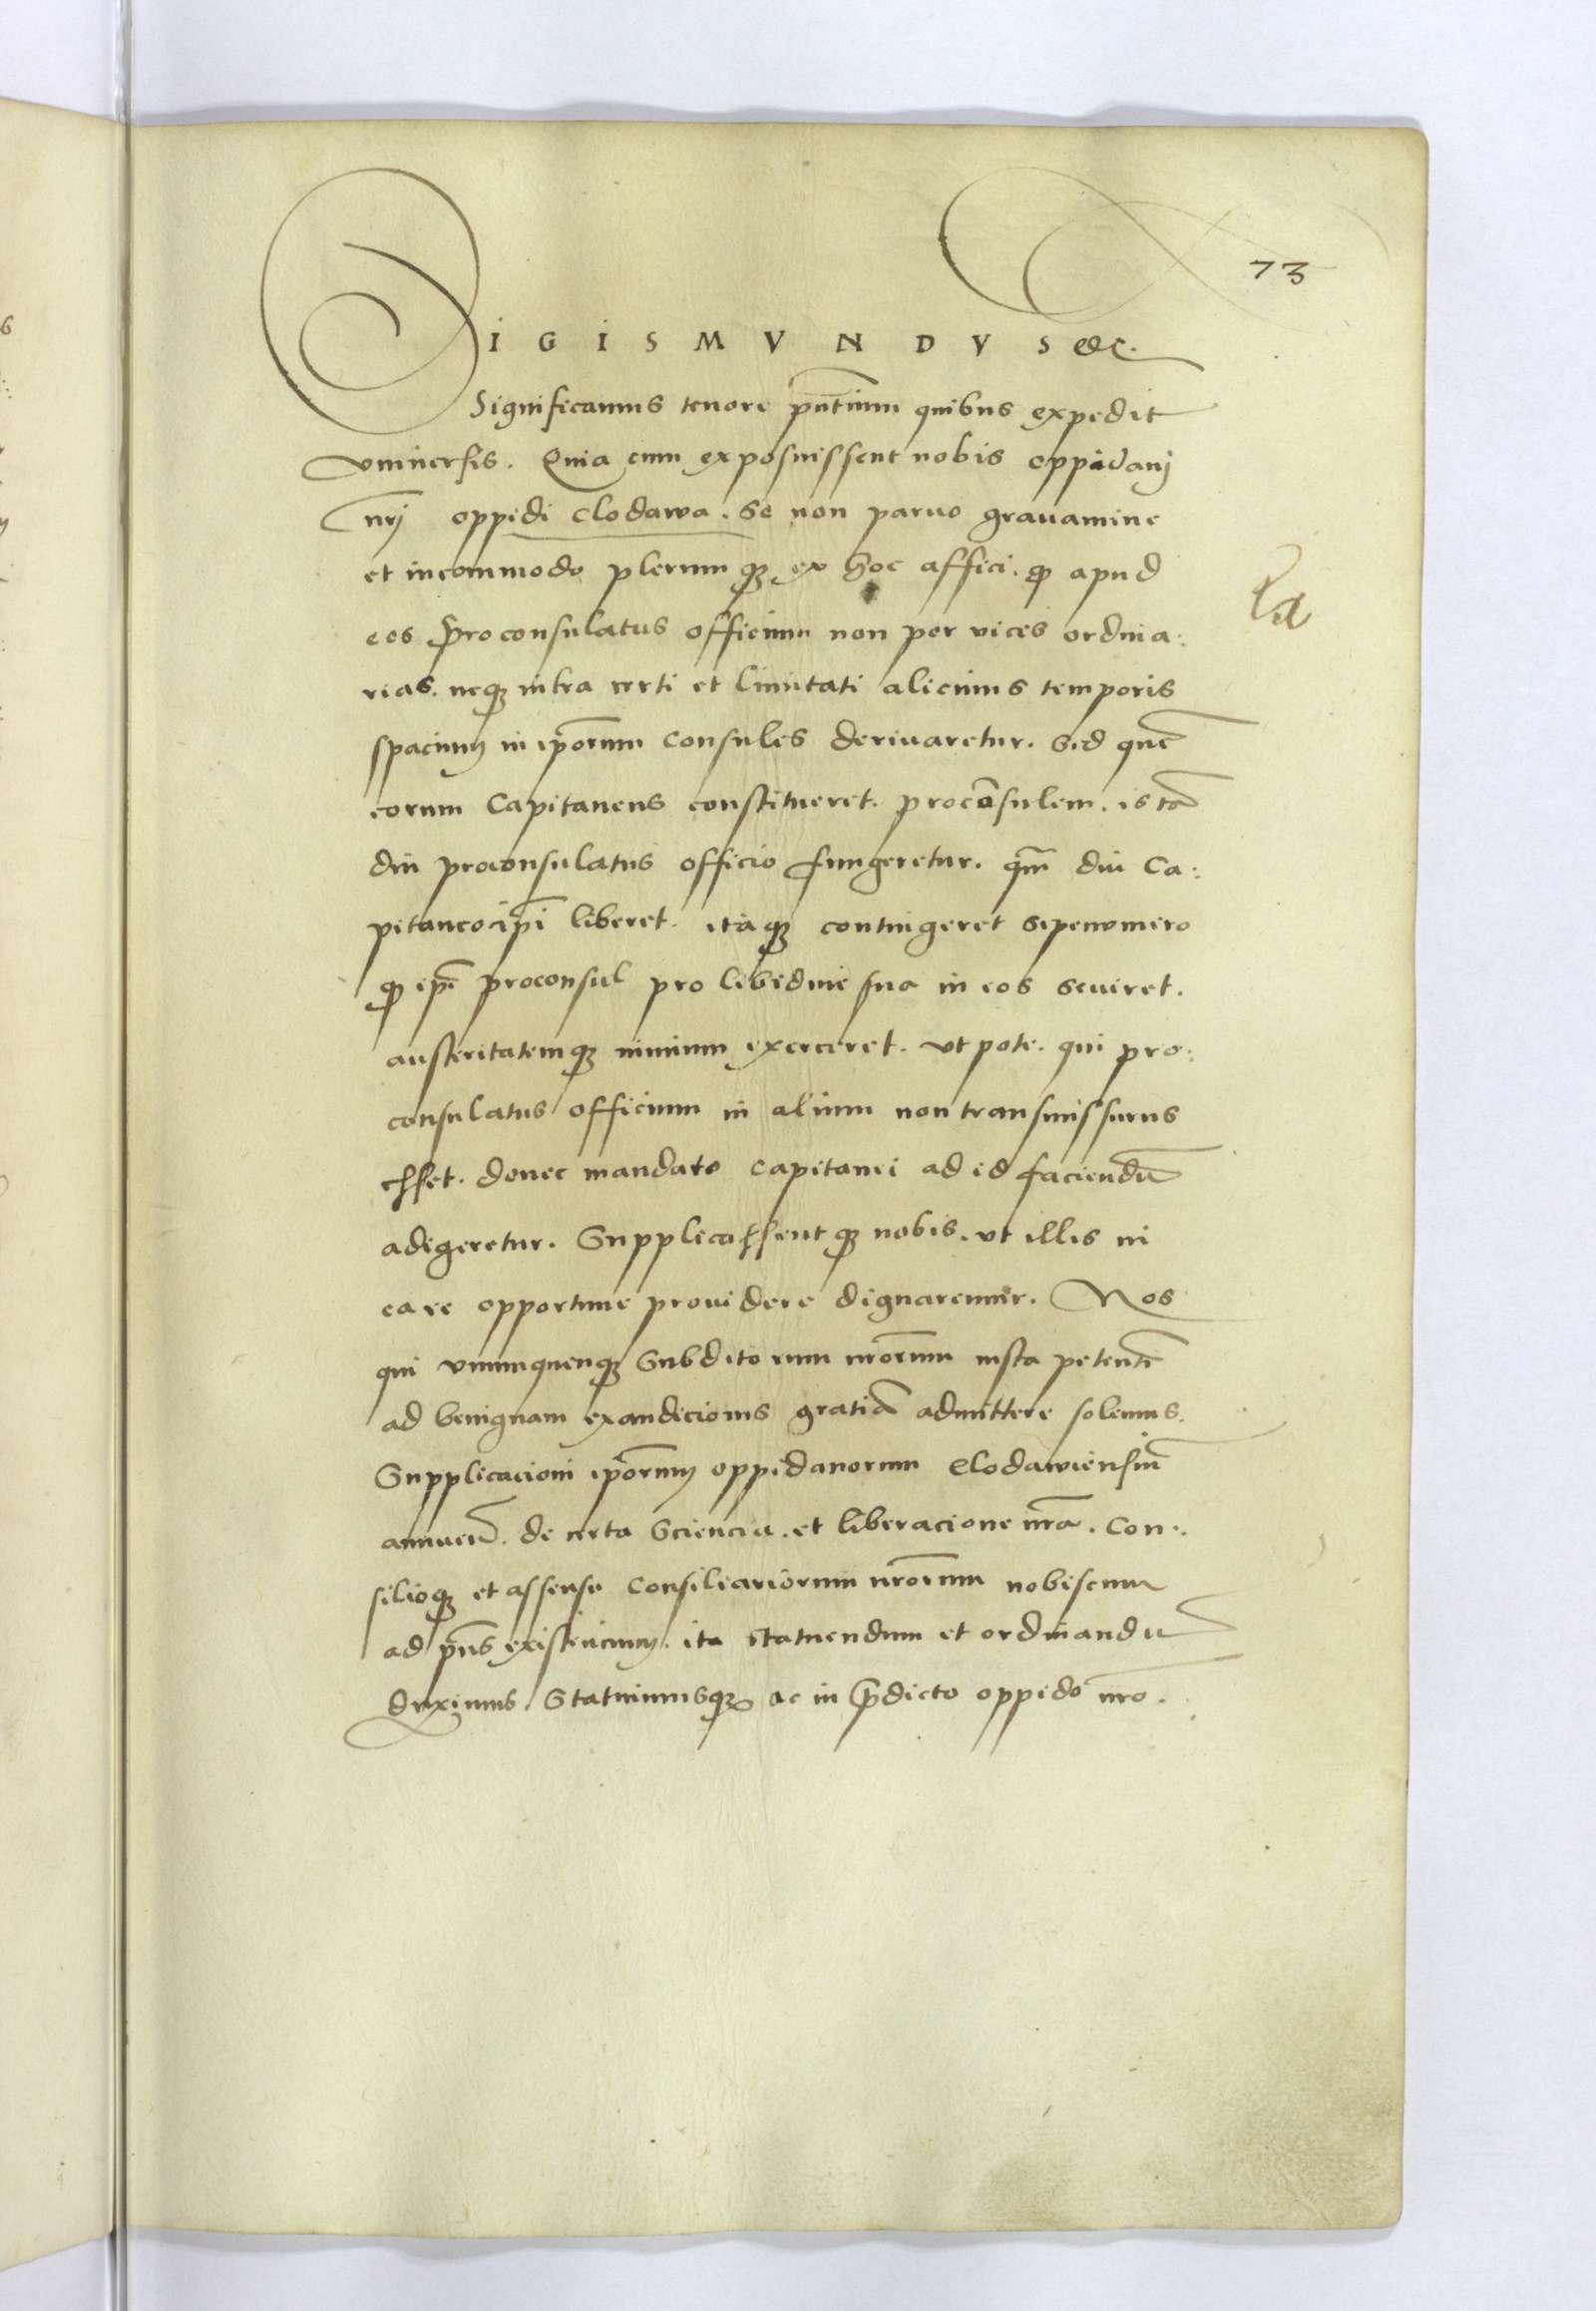 73
SIGISMVNDVS etc.
Significamus tenore pñtium quibus expedit
vniuersis. Quia cum exposuissent nobis oppidanj
nrj oppidi Clodawa. Se non paruo grauamine
et incommodo plerumqȝ ex hoc affici. qȝ apud
La
eos Proconsulatus officium non per vices ordina:
rias. neqȝ intra certi et limitati alicuius temporis
spacium in ipõrum Consules deriuaretur. Sed quẽ
eorum Capitaneus constitueret. procõsulem. is tã
diu proconsulatus officio fungeretur. qm̃ diu Ca:
pitaneo ip̃i liberet. itaqȝ contingeret sepenumero
qȝ ip̃e proconsul pro libidine sua in eos seuiret.
austeritatemqȝ nimium exerceret. vt pote. qui pro:
consulatus officium in alium non transmissurus
esset. donec mandato Capitanei ad id faciendũ
adigeretur. Supplicassentqȝ nobis. vt illis in
ea re opportune prouidere dignaremur. Nos
qui vnumquenqȝ Subditorum nrõrum iusta petentẽ
ad benignam exaudicionis gratiã admittere solemus.
Supplicacioni ipõrum oppidanorum Clodawiensiũ
annuen̄. de certa Sciencia. et liberacione nrã. Con:
silioqȝ et assensu Consiliariorum nrõrum nobiscum
ad pñs existencium. ita statuendum et ordinandũ
duximus. Statuimusqȝ ac in p̃dicto oppido nrõ.